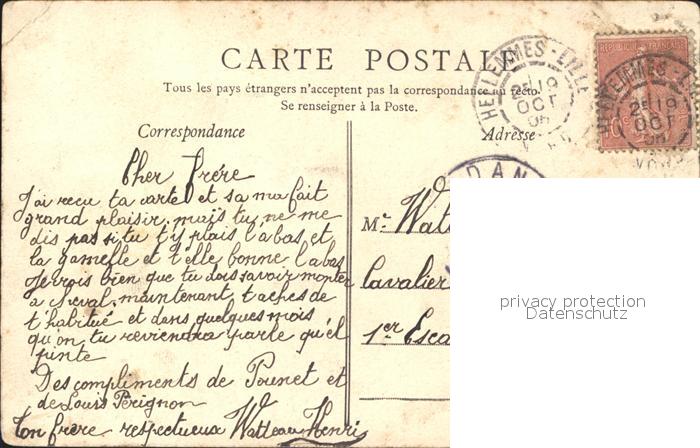 CARTE POSTALE
Tous les pays étrangers n'acceptent pas la correspondance au recto.
Se renseigner à la Poste.
Correspondance
Cher frére
J'ai reçu ta carte et sa ma fait
grand plaisir, maïs tu ne me
dis pas si tu t'y plais l'a bas et
la gamelle et t'elle bonne l'a bas
bien que tu dois savoir monter
a cheval, maintenant taches de
t'habitué et dans quelques mois
qu'on tu reviendra parle qu'el
pinte
Des compliments de Pounet et
de Louis Pérignon
Ton frère respectueux Watteau Henri
Adresse
Mr. Wat
Cavalier
1er Esca
HELLEMMES-LILLE
2E 19
OCT
06
NORD
REPUBLIQUE FRANÇAISE
HELLEMMES-L
2E 19
OCT
06
NORD
DAN
privacy protection
Datenschutz